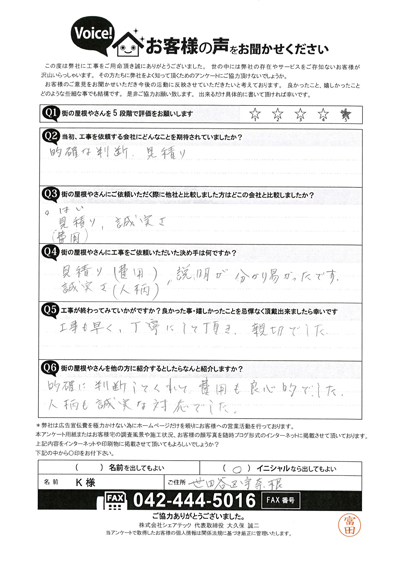 Voice!
お客様の声をお聞かせください
この度は弊社に工事をご用命頂き誠にありがとうございました。 世の中には弊社の存在やサービスをご存知ないお客様が
沢山いらっしゃいます。 その方たちに弊社をよく知って頂くためのアンケートにご協力頂けないでしょうか。
お客様のご意見をお聞かせいただき今後の活動に反映させていただきたいと考えております。 良かったこと、嬉しかったこと
どのような些細な事でも結構です。 是非ご協力お願い致します。 出来るだけ具体的に書いて頂ければ幸いです。
Q1 街の屋根やさんを5段階で評価をお願いします ☆ ☆ ☆ ☆ ★
Q2 当初、工事を依頼する会社にどんなことを期待されていましたか?
的確な判断、見積り
Q3 街の屋根やさんにご依頼いただく際に他社と比較しました方はどこの会社と比較しましたか?
。はい
見積り、誠実さ
(費用)
Q4 街の屋根やさんに工事をご依頼いただいた決め手は何ですか?
見積り(費用)、説明が分かり易かったです。
誠実さ(人柄)
Q5 工事が終わってみていかがですか?良かった事・嬉しかったことを忌憚なく頂戴出来ましたら幸いです
工事も早く、丁寧にして頂き、親切でした。
Q6 街の屋根やさんを他の方に紹介するとしたらなんと紹介しますか?
的確に判断してくれて、費用も良心的でした。
人柄も誠実な対応でした。
*弊社は広告宣伝費を極力かけない為にホームページだけを頼りにお客様への営業活動を行っております。
本アンケート用紙またはお客様宅の調査風景や施工状況、お客様の顔写真を随時ブログ形式のインターネットに掲載させて頂いております。
上記内容をインターネットや印刷物に掲載させて頂いてもよろしいでしょうか?
下記の中から〇印をお付下さい。
( ) 名前を出してもよい ( ○ ) イニシャルなら出してもよい
名前 K様 ご住所 世田谷区宇奈根
FAX 042-444-5016 FAX番号
ご協力ありがとうございました。
株式会社シェアテック 代表取締役 大久保 誠二
当アンケートで取得したお客様の個人情報は関係法規に基づき厳正に管理いたします。
富田